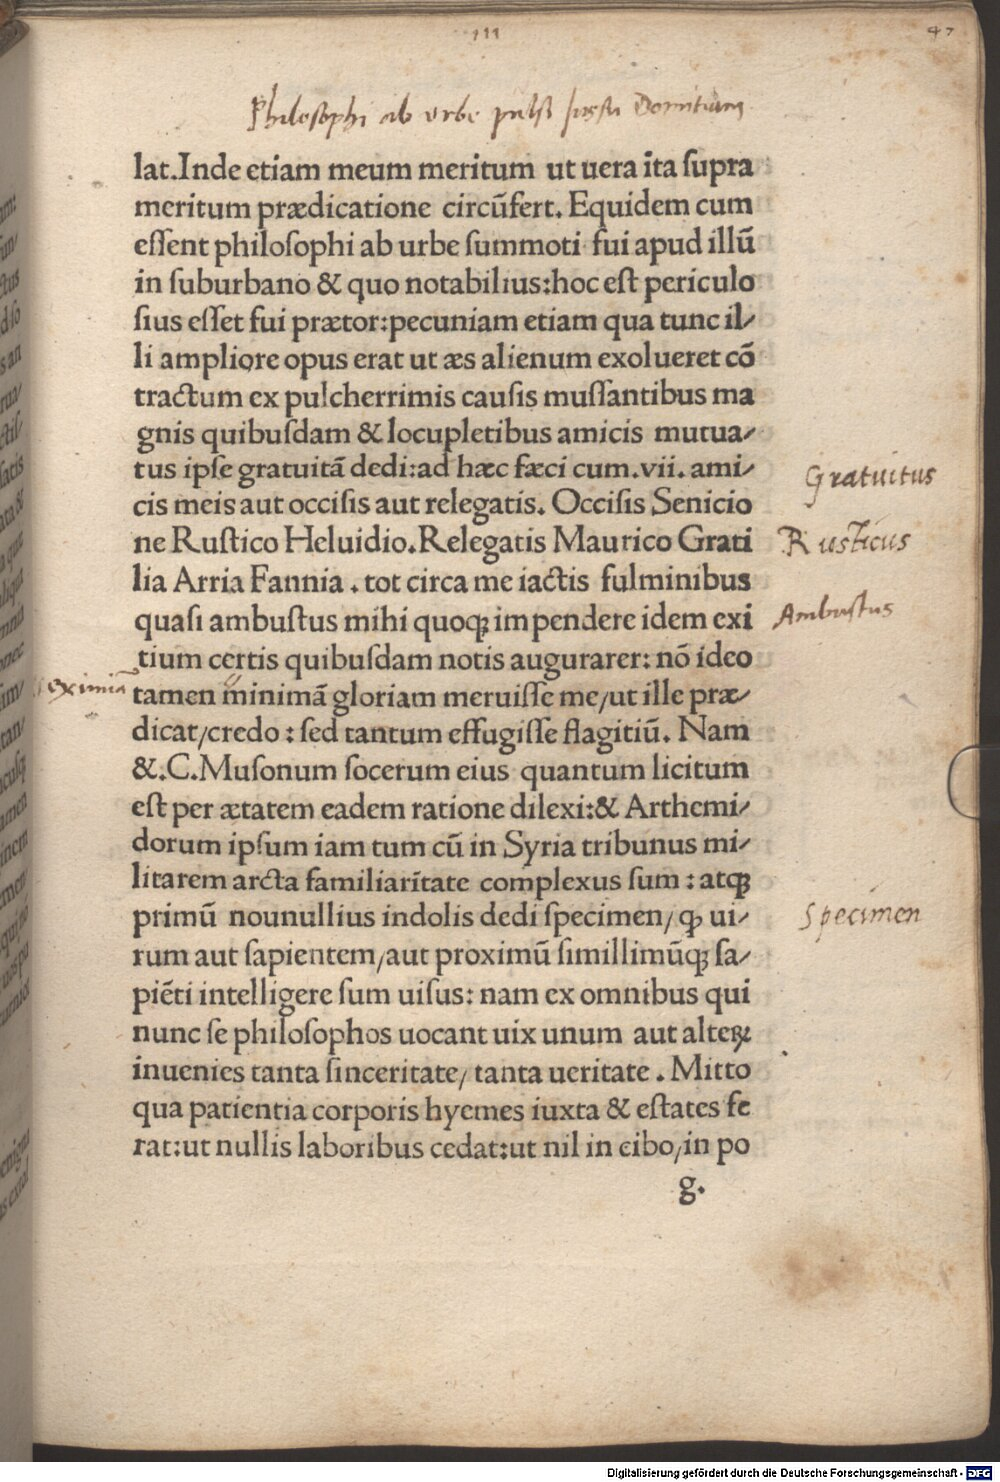 111
47
Philosophi ab urbe pulsi iussu Domitiani
lat.Inde etiam meum meritum ut uera ita supra
meritum prædicatione circũfert. Equidem cum
essent philosophi ab urbe summoti fui apud illũ
in suburbano & quo notabilius:hoc est periculo
sius esset fui prætor:pecuniam etiam qua tunc il⸗
li ampliore opus erat ut æs alienum exolueret cõ
tractum ex pulcherrimis causis mussantibus ma
gnis quibusdam & locupletibus amicis mutua⸗
tus ipse gratuitã dedi:ad hæc fæci cum.vii. ami⸗
Gratuitus
cis meis aut occisis aut relegatis. Occisis Senicio
ne Rustico Heluidio.Relegatis Maurico Grati
Rusticus
lia Arria Fannia . tot circa me iactis fulminibus
quasi ambustus mihi quoqꝫ impendere idem exi
Ambustus
tium certis quibusdam notis augurarer: nõ ideo
eximiã
tamen minimã gloriam meruisse me/ut ille præ⸗
dicat/credo : sed tantum effugisse flagitiũ. Nam
&.C.Musonum socerum eius quantum licitum
est per ætatem eadem ratione dilexi:& Arthemi⸗
dorum ipsum iam tum cũ in Syria tribunus mi⸗
litarem arcta familiaritate complexus sum : atqꝫ
primũ nounullius indolis dedi specimen/ ꝙ ui⸗
Specimen
rum aut sapientem/aut proximũ simillimũqꝫ sa⸗
piẽti intelligere sum uisus: nam ex omnibus qui
nunc se philosophos uocant uix unum aut alteꝝ
inuenies tanta sinceritate/ tanta ueritate . Mitto
qua patientia corporis hyemes iuxta & estates fe
rat:ut nullis laboribus cedat:ut nil in cibo/in po
g.
Digitalisierung gefördert durch die Deutsche Forschungsgemeinschaft - DFG